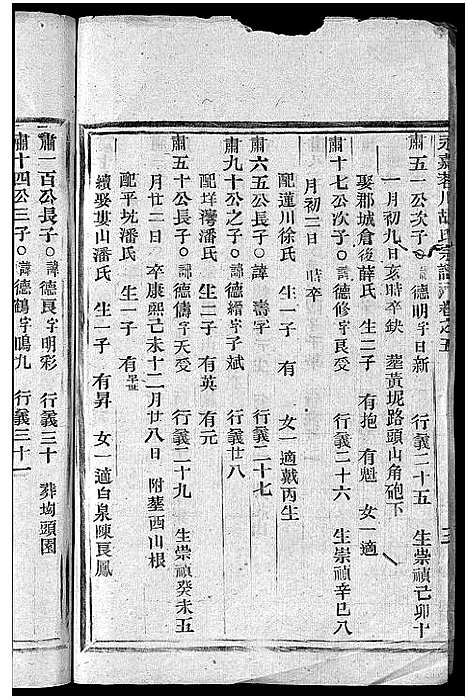 永嘉蓉川胡氏宗譜 卷之五
肅五一公次子 諱德明字日新 行義二十五 生崇禎己卯十
一月初九日亥時卒缺 墓黃坭路頭山角砲下
娶郡城倉後薛氏 生二子 有抱 有魁 女一適
肅十七公次子 諱德修字良受 行義二十六 生崇禎辛巳八
月初三日 時卒
配蓮川徐氏 生一子 有 女一適戴丙生
肅六五公長子 諱 壽字 行義二十七
肅九十公之子 諱德縉字子斌 行義廿八
配垟灣潘氏 生二子 有英 有元
肅五十公長子 諱德儔字天受 行義二十九 生崇禎癸未五
月廿二日 卒康熙己未十二月廿八日 附墓西山根
配平坑潘氏 生一子 有
續娶婁山潘氏 生一子 有昇 女一適白泉陳良鳳
肅一百公長子 諱德良字明彩 行義三十 葬垧頭園
肅十四公三子 諱德鶴字鳴九 行義三十一